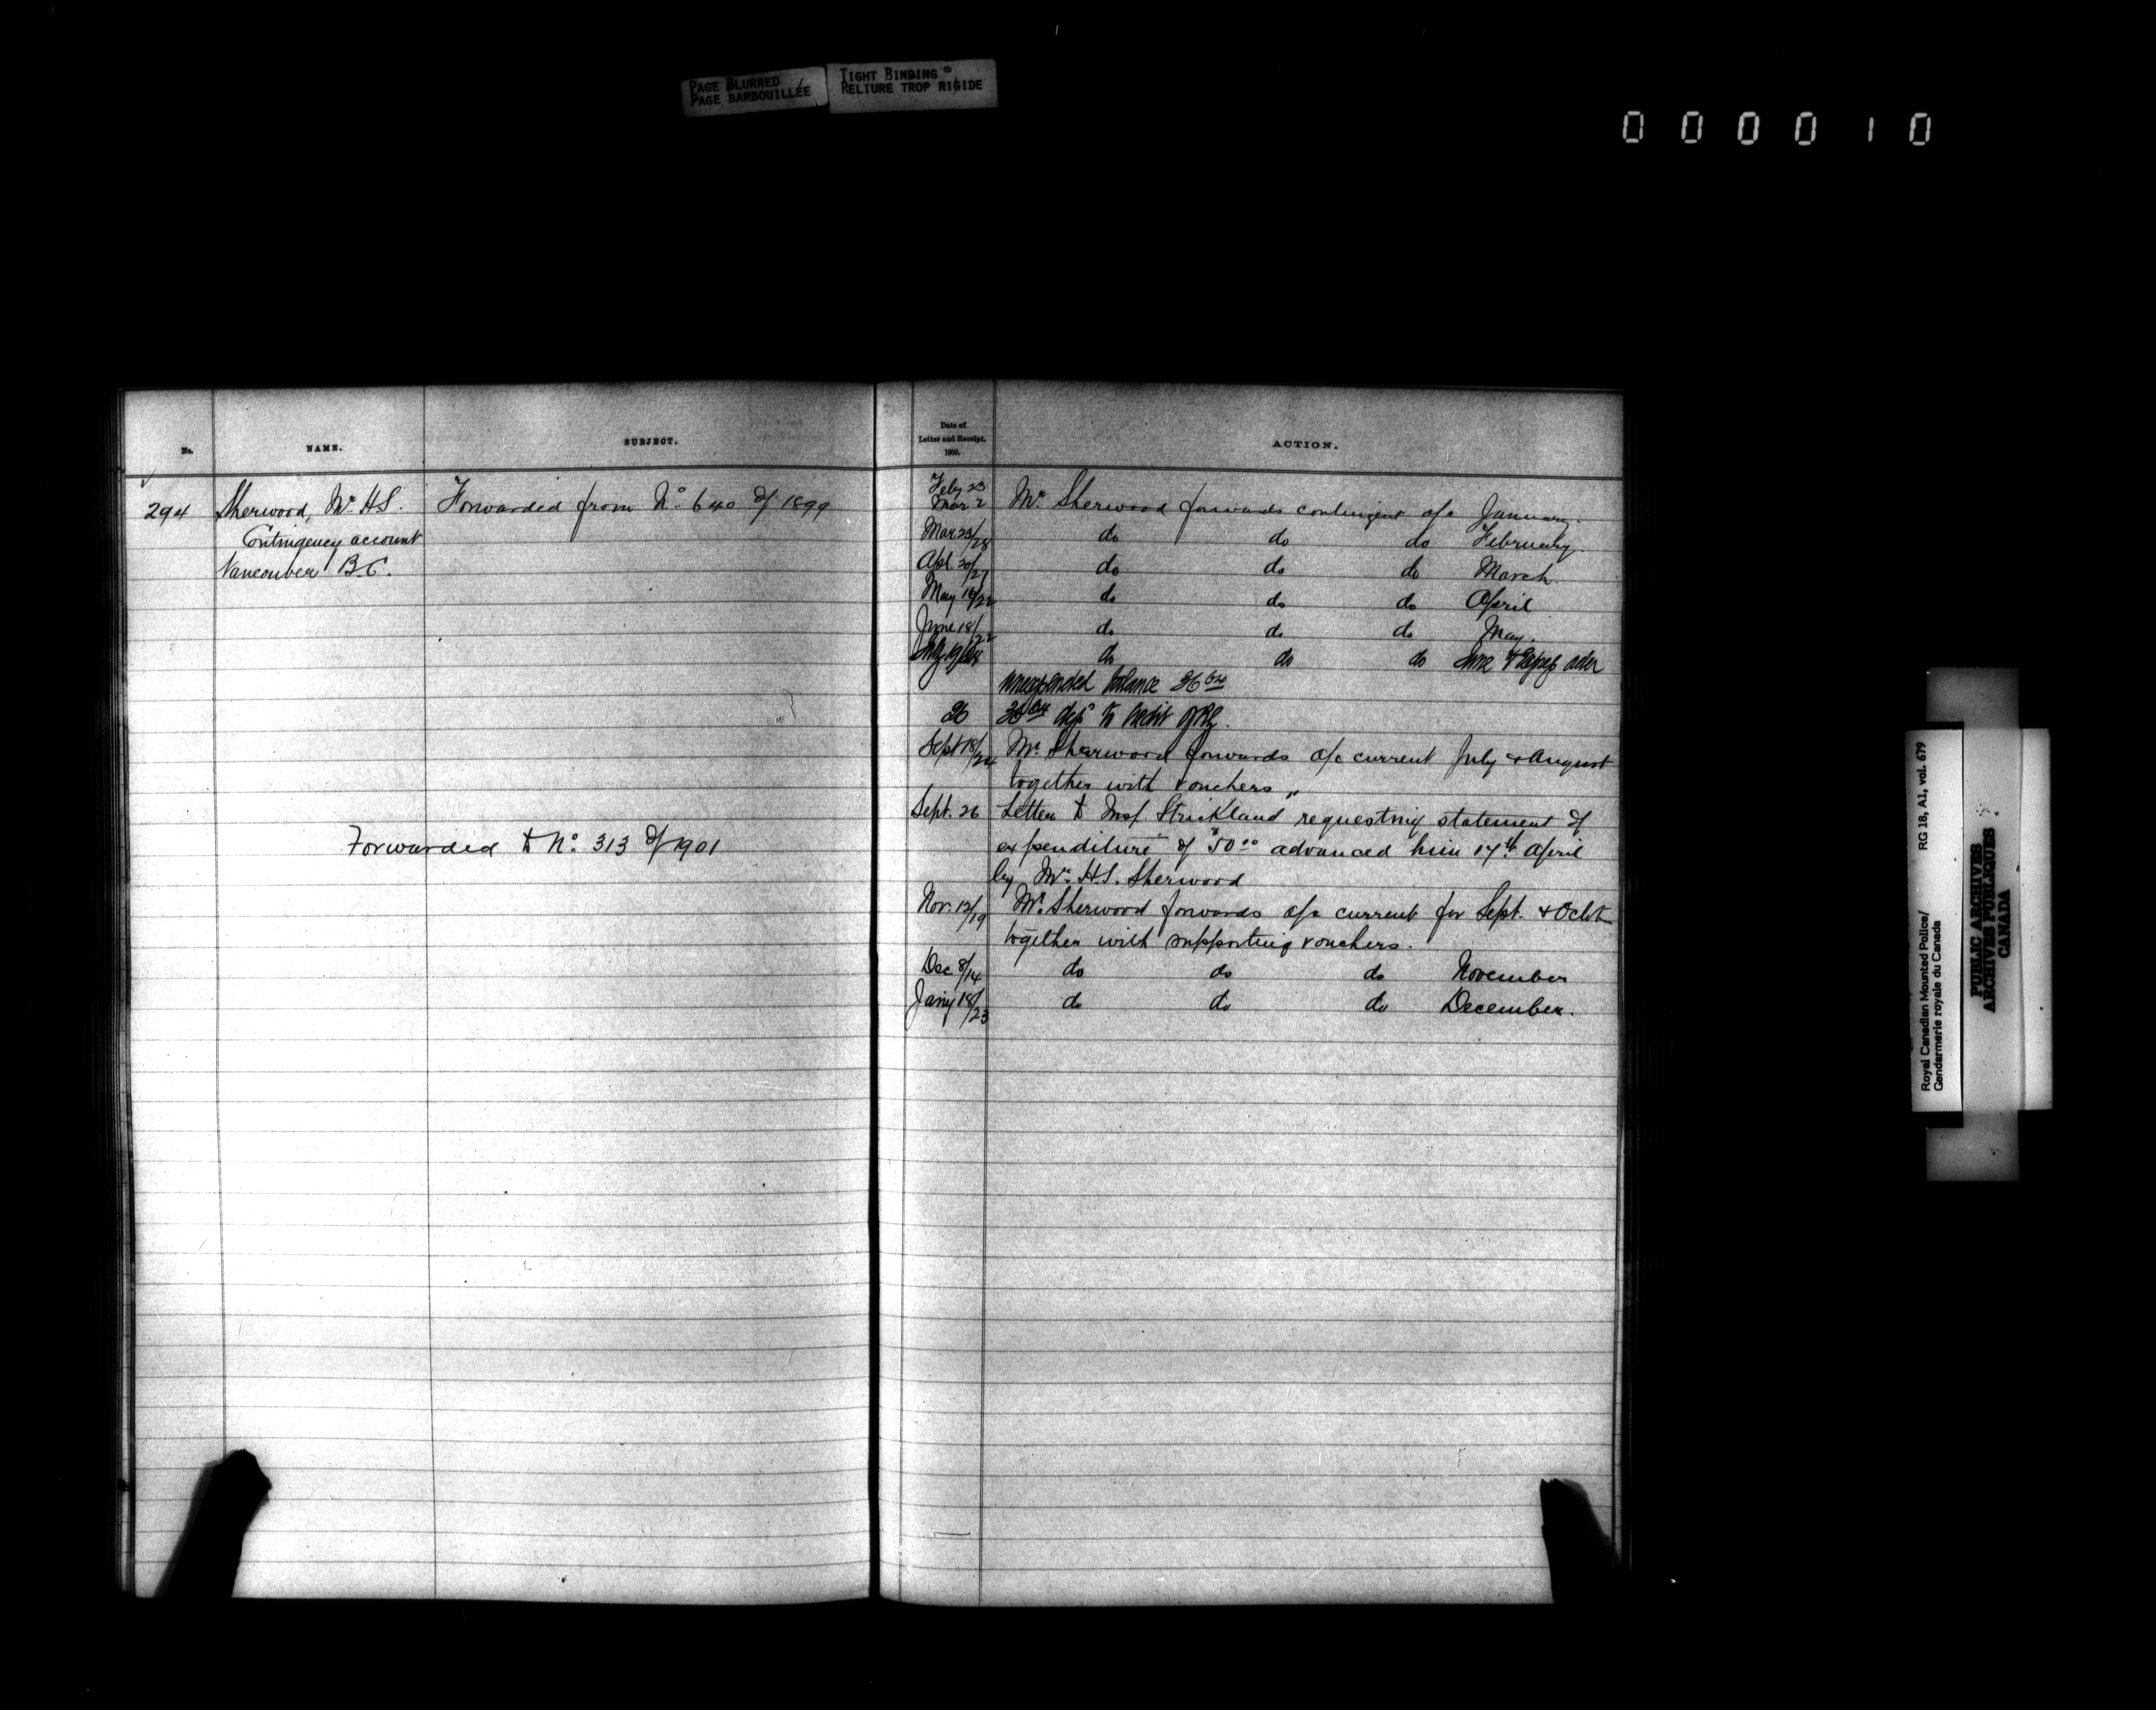 PAGE BLURRED
PAGE BARBOUILLÉE
TIGHT BINDING
RELIURE TROP RIGIDE
000010
No. NAME. SUBJECT.
294 Sherwood, Mr. H.S. Forwarded from No. 640 of 1899
Contingency account
Vancouver B.C.
Forwarded to No. 313 of 1901
Date of
Letter and Receipt.
1900.
ACTION.
Feby 23
Mar 2 Mr. Sherwood forwards contingent a/c January.
Mar. 23/28 do do do February.
Apl. 20/27 do do do March.
May 16/22 do do do April
June 18/22 do do do May.
do do do June
unexpended balance 36 64
26 36 64 dep. to credit
Sept 18/24 Mr. Sherwood forwards a/c current July & August
together with vouchers "
Sept. 26 Letter to Insp. Strickland requesting statement of
expenditure of $50 00 advanced him 17th April
by Mr. H.S. Sherwood
Nov. 12/19 Mr. Sherwood forwards a/c current for Sept. & Oct
together with supporting vouchers.
Dec 8/14 do do do November
Jany 18/23 do do do December.
Royal Canadian Mounted Police/ RG 18, A1, vol. 679
Gendarmerie royale du Canada
PUBLIC ARCHIVES
ARCHIVES PUBLIQUES
CANADA